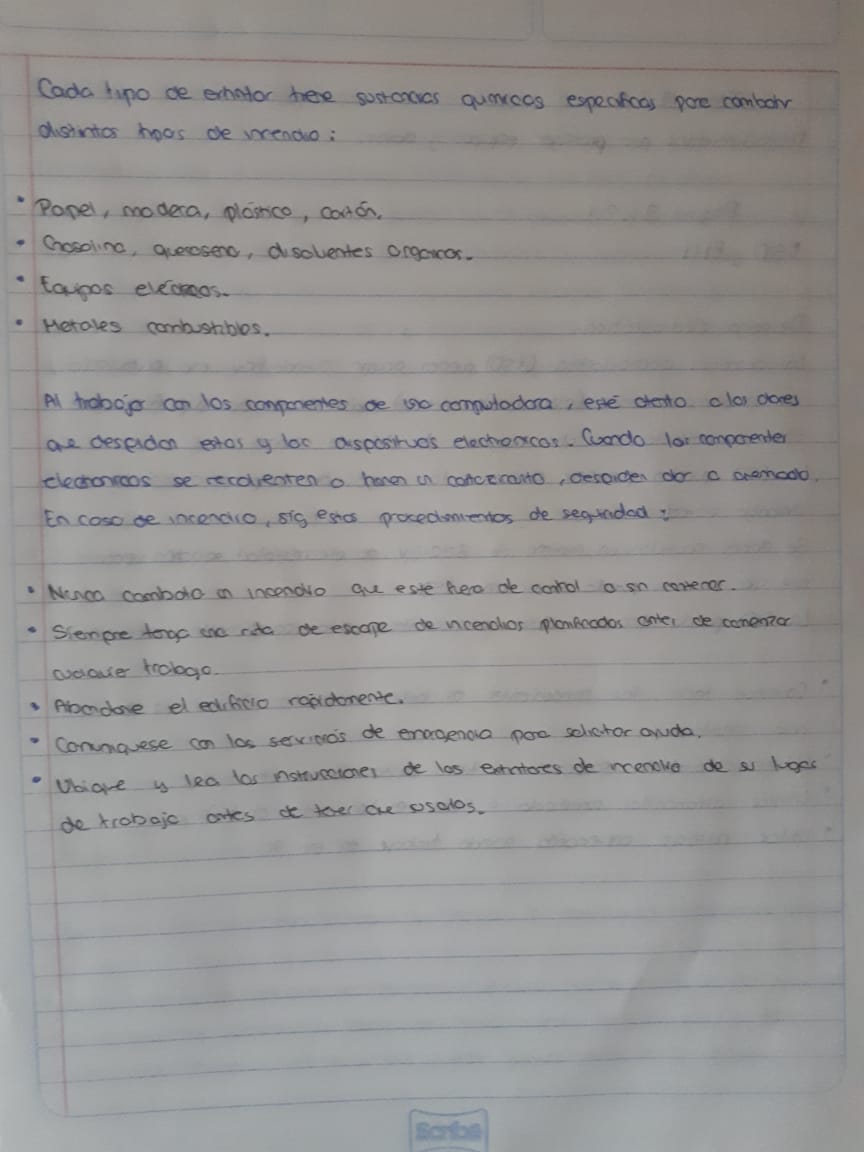 Cada tipo de extintor tiene sustancias químicas especificas para combatir
distintos tipos de incendio:
• Papel, madera, plástico, cartón.
• Gasolina, queroseno, disolventes organicos.
• Equipos eléctricos.
• Metales combustibles.
Al trabajar con los componentes de una computadora, esté atento a los olores
que despidan estos y los dispositivos electronicos. Cuando los componentes
electronicos se recalienten o hacen un cortocircuito, despiden olor a quemado.
En caso de incendio, sig estos procedimientos de seguridad:
• Nunca combata un incendio que esté fuera de control o sin contener.
• Siempre tenga una ruta de escape de incendios planificados antes de comenzar
cualquier trabago.
• Abandone el edificio rapidamente.
• Comuniquese con los servicios de emergencia para solicitar ayuda.
• Ubique y lea las instrucciones de los extintores de incendio de su lugar
de trabajo antes de tener que usalos.
Scribe